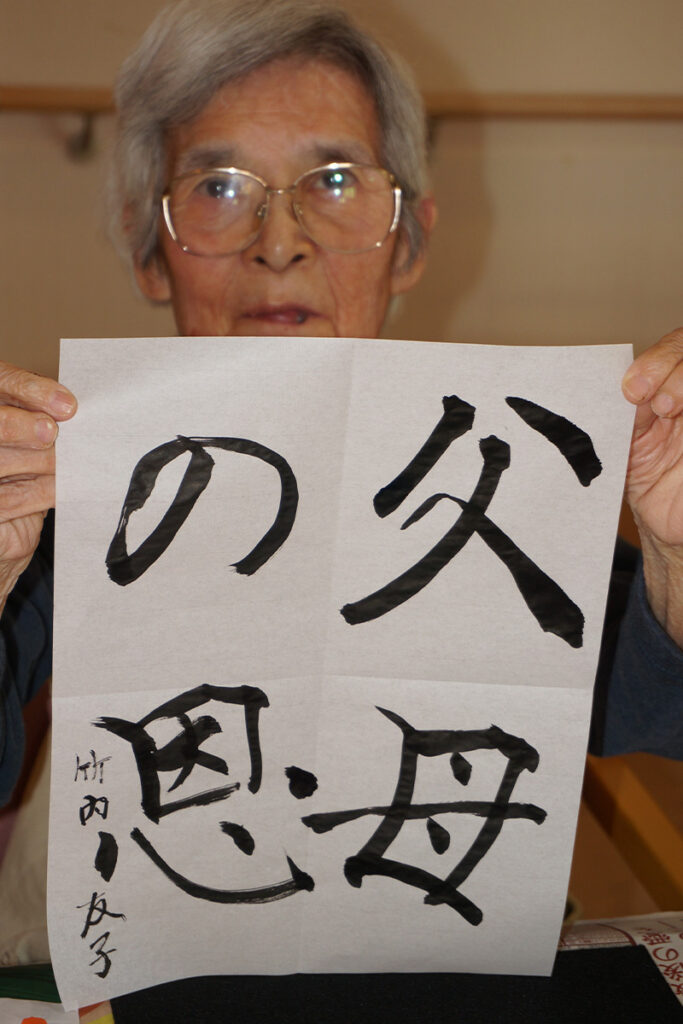 父母
の恩
竹内友子